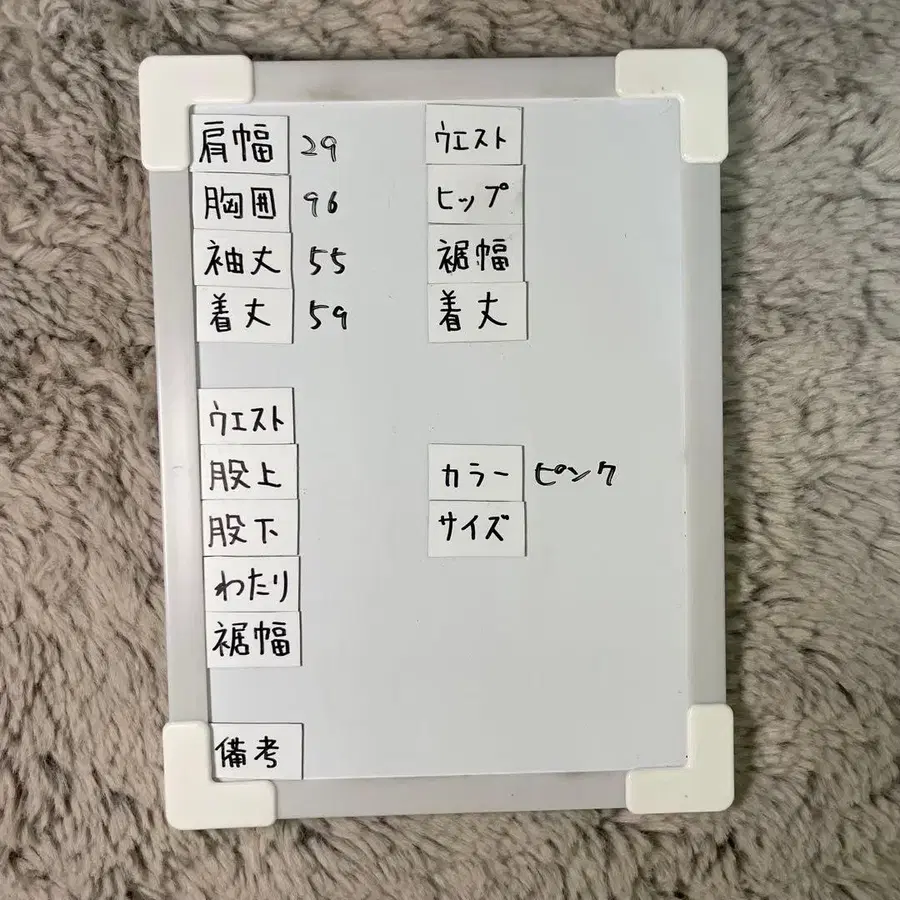 肩幅 29
胸囲 96
袖丈 55
着丈 59
ウエスト
股上
股下
わたり
裾幅
備考
ウエスト
ヒップ
裾幅
着丈
カラー ピンク
サイズ